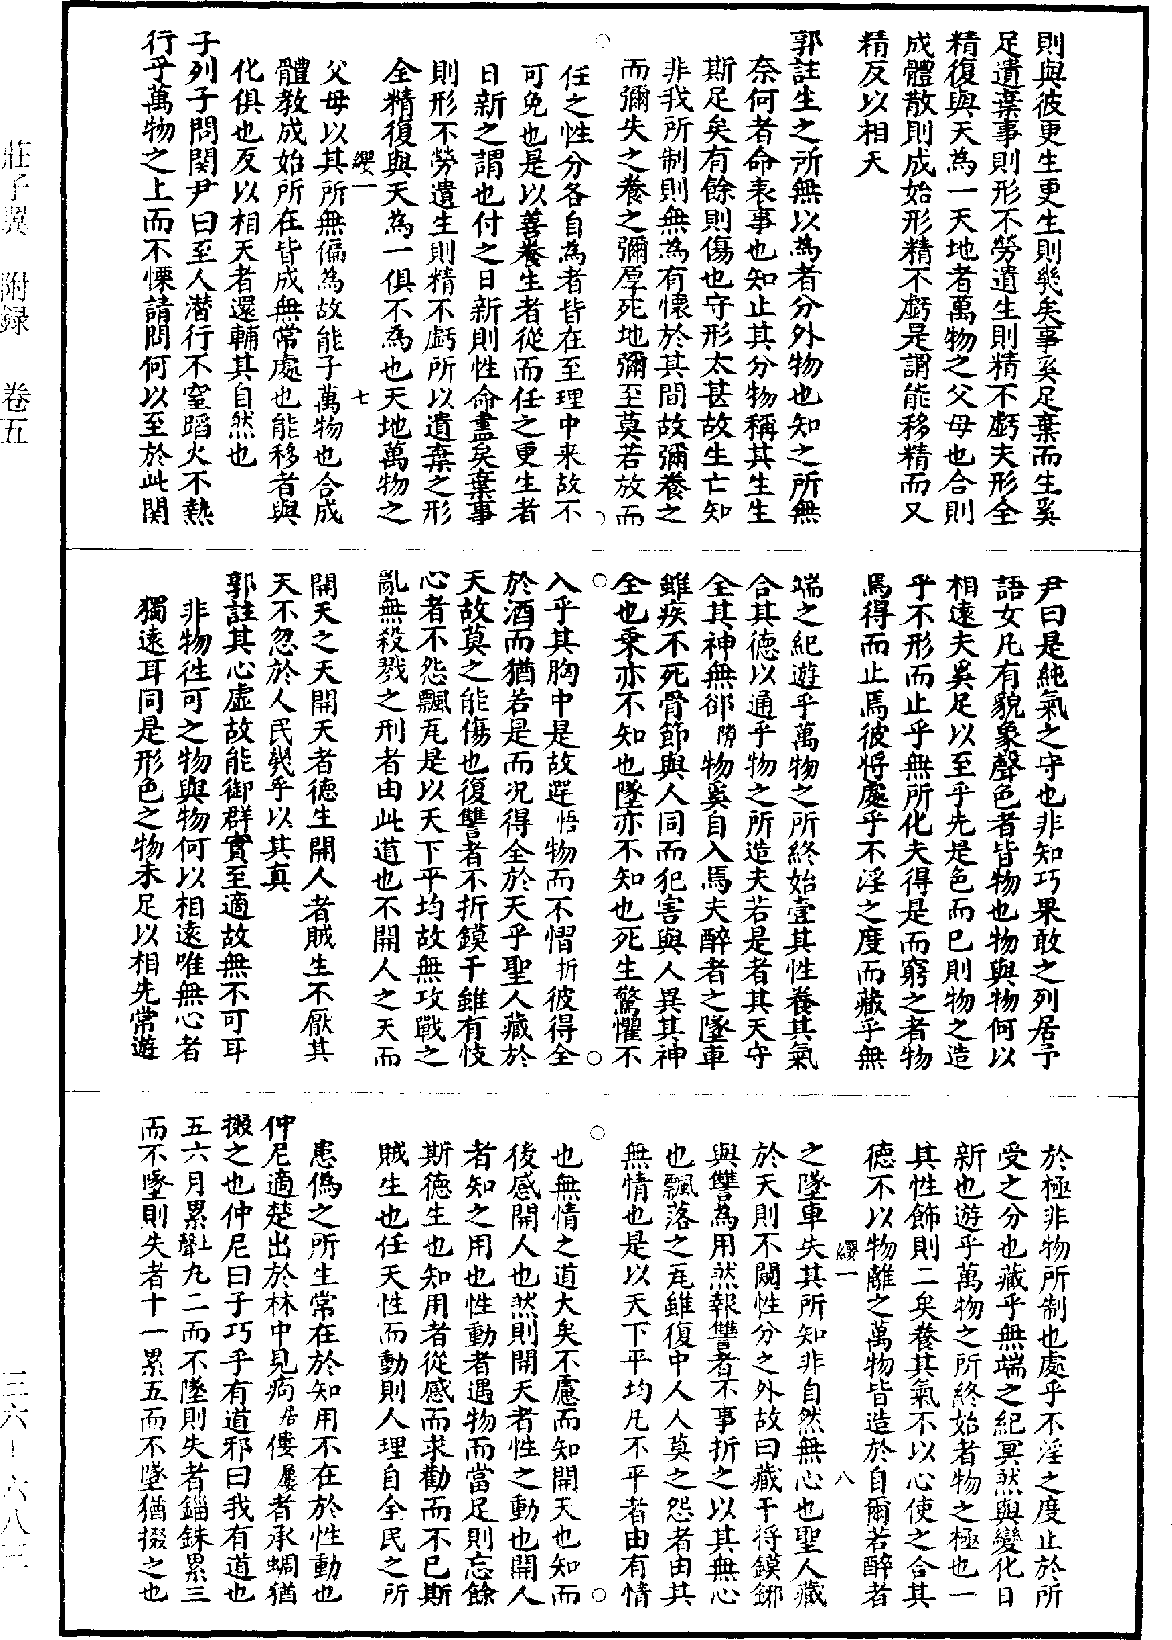 則與彼更生更生則幾矣事奚足棄而生奚
足遺棄事則形不勞遺生則精不虧夫形全
精復與天為一天地者萬物之父母也合則
成體散則成始形精不虧是謂能移精而又
精反以相天
郭註生之所無以為者分外物也知之所無
奈何者命表事也知止其分物稱其生生
斯足矣有餘則傷也守形太甚故生亡知
非我所制則無為有懷於其間故彌養之
而彌失之養之彌厚死地彌至莫若放而
任之性分各自為者皆在至理中来故不
可免也是以善養生者從而任之更生者
日新之謂也付之日新則性命盡矣棄事
則形不勞遺生則精不虧所以遺棄之形
全精復與天為一俱不為也天地萬物之
纓一 七
父母以其所無偏為故能子萬物也合成
體教成始所在皆成無常處也能移者與
化俱也反以相天者還輔其自然也
子列子問関尹曰至人潜行不窒蹈火不熱
行乎萬物之上而不慄請問何以至於此関
尹曰是純氣之守也非知巧果敢之列居予
語女凡有貌象聲色者皆物也物與物何以
相遠夫奚足以至乎先是色而已則物之造
乎不形而止乎無所化夫得是而窮之者物
焉得而止焉彼將處乎不淫之度而藏乎無
端之紀遊乎萬物之所終始壹其性養其氣
合其德以通乎物之所造夫若是者其天守
全其神無郤隙物奚自入焉夫醉者之墜車
雖疾不死骨節與人同而犯害與人異其神
全也乘亦不知也墜亦不知也死生驚懼不
入乎其胸中是故遻悟物而不慴折彼得全
於酒而猶若是而況得全於天乎聖人藏於
天故莫之能傷也復讐者不折鏌干雖有忮
心者不怨飄瓦是以天下平均故無攻戰之
亂無殺戮之刑者由此道也不開人之天而
開天之天開天者德生開人者賊生不厭其
天不忽於人民幾乎以其真
郭註其心虛故能御群實至適故無不可耳
非物徃可之物與物何以相遠唯無心者
獨遠耳同是形色之物未足以相先常遊
於極非物所制也處乎不淫之度止於所
受之分也藏乎無端之紀冥然與變化日
新也遊乎萬物之所終始者物之極也一
其性飾則二矣養其氣不以心使之合其
德不以物離之萬物皆造於自爾若醉者
纓一 八
之墜車失其所知非自然無心也聖人藏
於天則不闚性分之外故曰藏干将鏌鋣
與讐為用然報讐者不事折之以其無心
也飄落之瓦雖復中人人莫之怨者由其
無情也是以天下平均凡不平者由有情
也無情之道大矣不慮而知開天也知而
後感開人也然則開天者性之動也開人
者知之用也性動者遇物而當足則忘餘
斯德生也知用者從感而求勸而不已斯
賊生也任天性而動則人理自全民之所
患偽之所生常在於知用不在於性動也
仲尼適楚出於林中見痀居僂屢者承蜩猶
掇之也仲尼曰子巧乎有道邪曰我有道也
五六月累上聲九二而不墜則失者錙銖累三
而不墜則失者十一累五而不墜猶掇之也
莊子翼 附録 卷五
三六—六八三